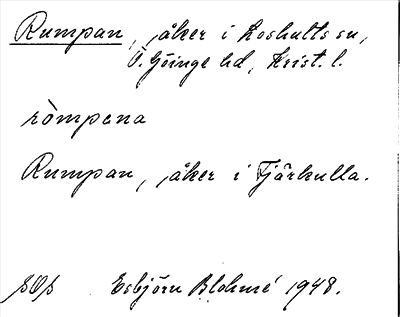 Rumpan, åker i Loshults sn,
Ö. Göinge hd, Krist. l.
ròmpena
Rumpan, åker i Tjärkulla.
Esbjörn Blohmé 1948.